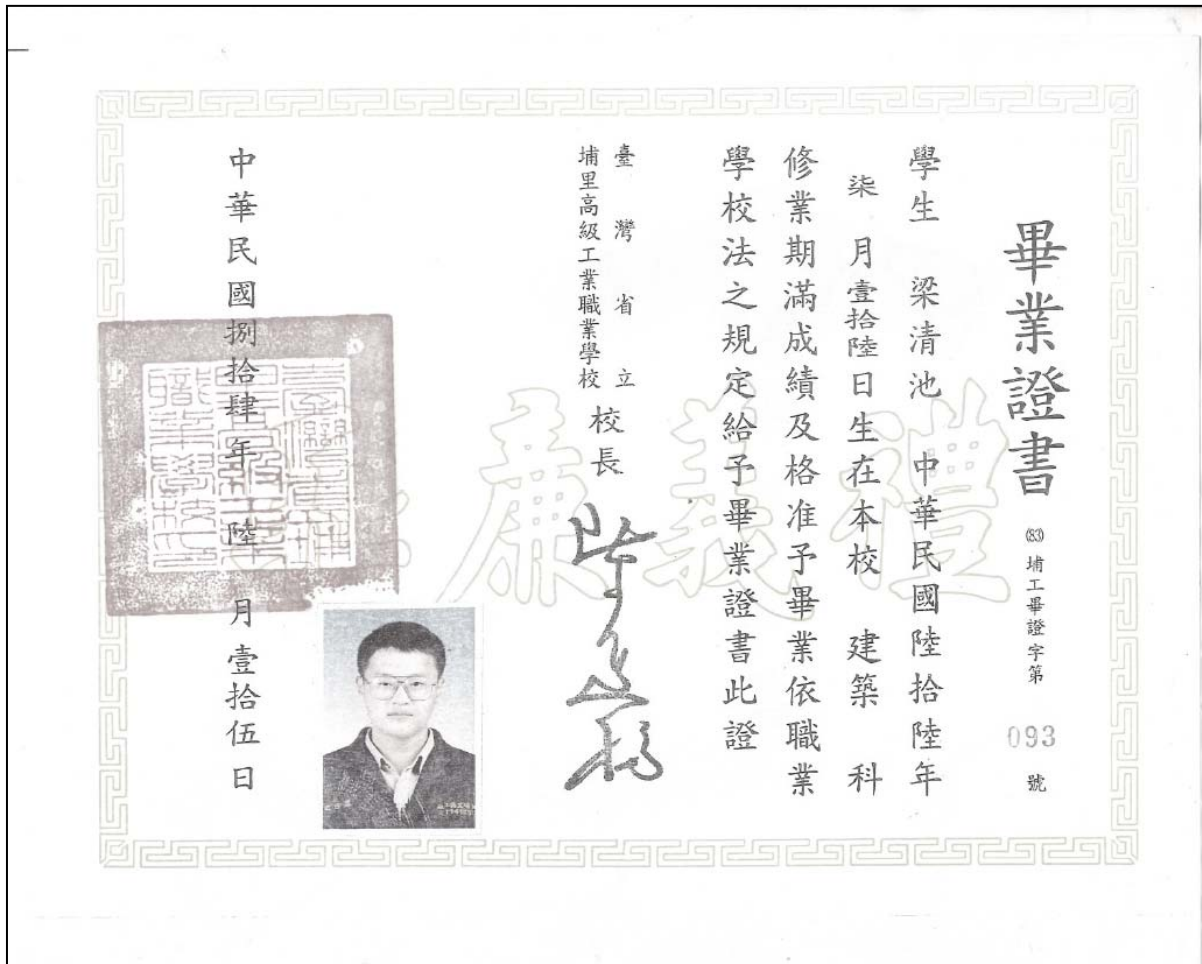 畢業證書
(83)埔工畢證字第 093 號
學生 梁清池 中華民國陸拾陸年
柒 月壹拾陸日生在本校 建築 科
修業期滿成績及格准予畢業依職業
學校法之規定給予畢業證書此證
臺灣省立
埔里高級工業職業學校
校長
中華民國捌拾肆年 陸 月壹拾伍日
禮義廉